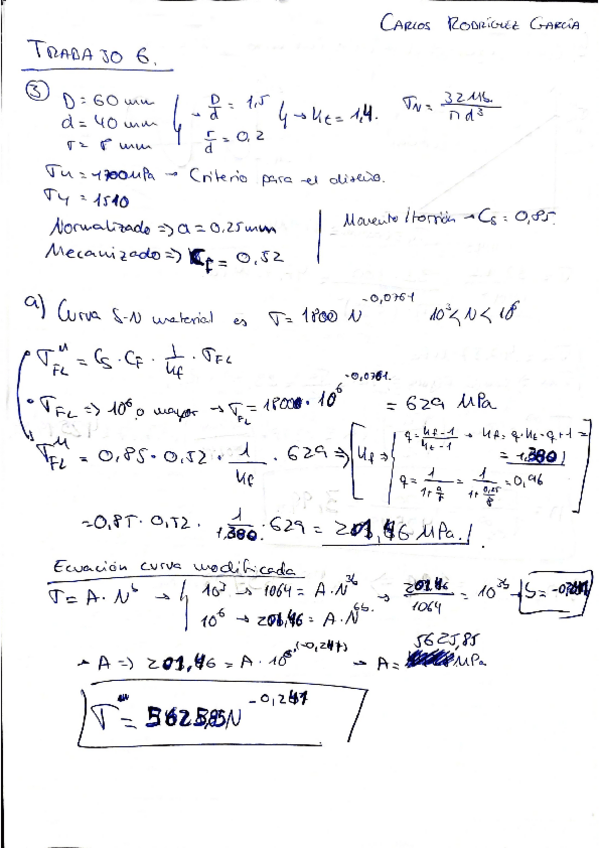 CARLOS RODRÍGUEZ GARCÍA
TRABAJO 6.
③
D = 60 mm
d = 40 mm
r = 8 mm
→ D/d = 1,5
r/d = 0,2
→ Kt = 1,4.
σN = 32Mb/πd³
σu = 1700 MPa → Criterio para el diseño.
σy = 1510
Normalizado => a = 0.25 mm
Mecanizado => CF = 0,52
Momento/torsión → Cs = 0,85.
a) Curva S-N material es σ = 1800 N^-0,0761 10³ < N < 10⁸
σFL^M = Cs · CF · 1/Kf · σFL
• σFL => 10⁶ o mayor → σFL = 1800 · 10⁶^-0,0761 = 629 MPa
σFL^M = 0,85 · 0,52 · 1/Kf · 629 =>
Kf => q = Kf-1/Kt-1 → Kf = q·Kt-q+1 = 1,380
q = 1/1+a/r = 1/1+0,25/8 = 0,96
= 0,85 · 0,52 · 1/1,380 · 629 = 201,46 MPa.
Ecuación curva modificada
σ = A · N^b → 10³ → 1064 = A · N^3b
10⁶ → 201,46 = A · N^6b
→ 201,46/1064 = 10^3b
→ A => 201,46 = A · 10^6(-0,241) → A = 5625,85 MPa
σ^M = 5625,85 N^-0,241